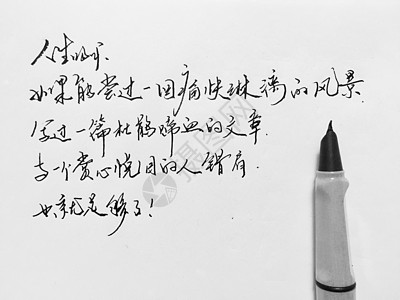 人生呵.
如果能尝过一回痛快淋漓的风景.
写过一篇杜鹃啼血的文章.
与一个赏心悦目的人错肩.
也就足够了!
摄图网